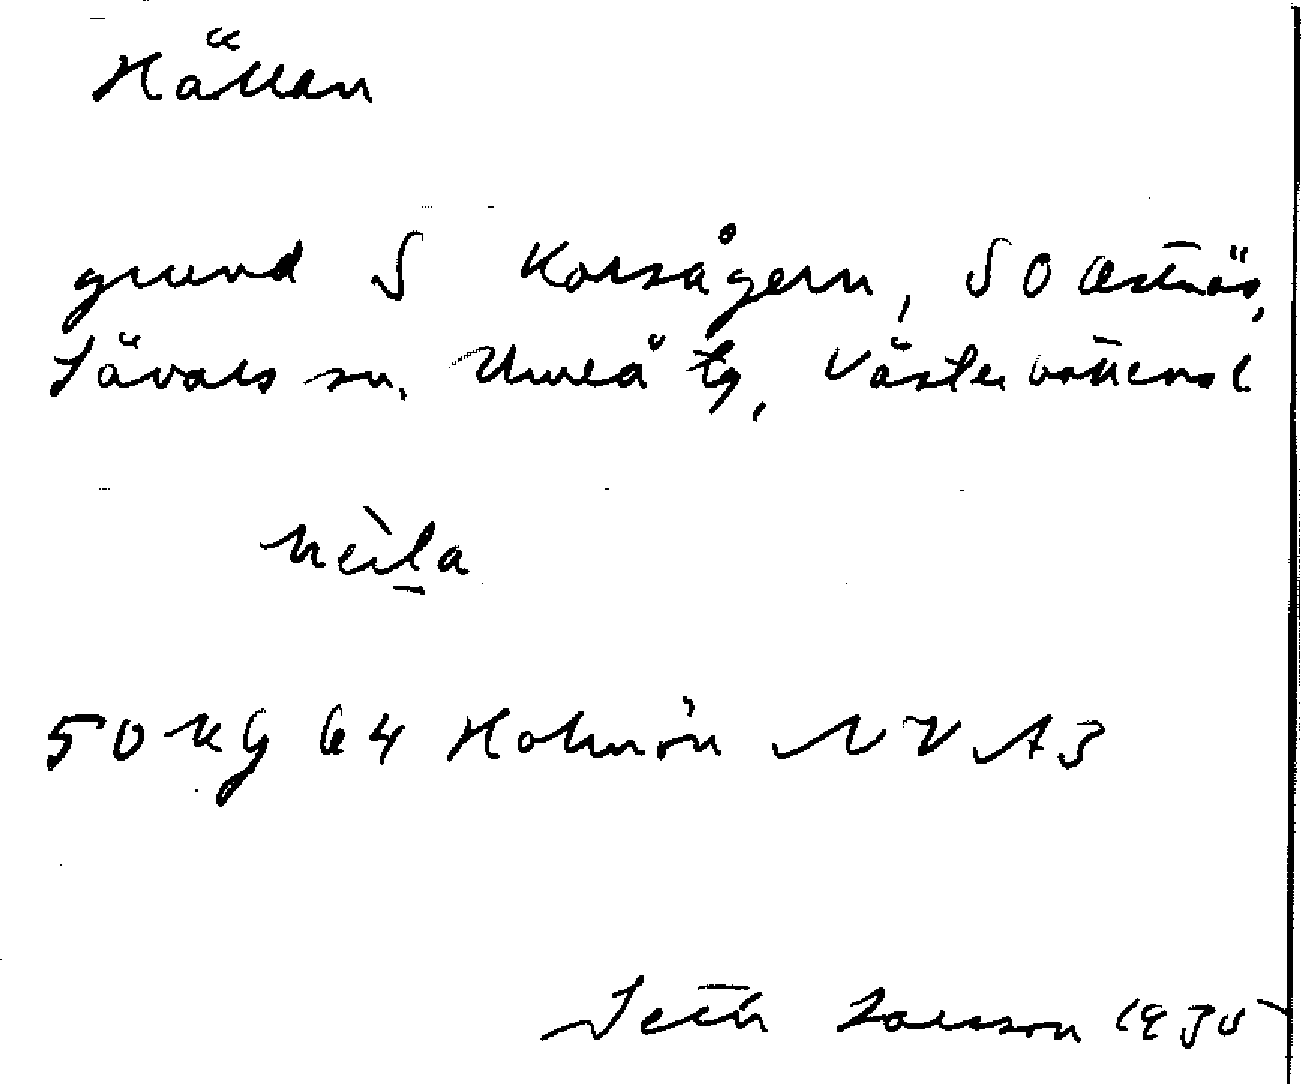 Hällan
grund S Korsågern, SO Ostnäs,
Sävars sn, Umeå tg, Västerbottens l
50 KG 64 Holmön NV A3
Seth Larsson 1935